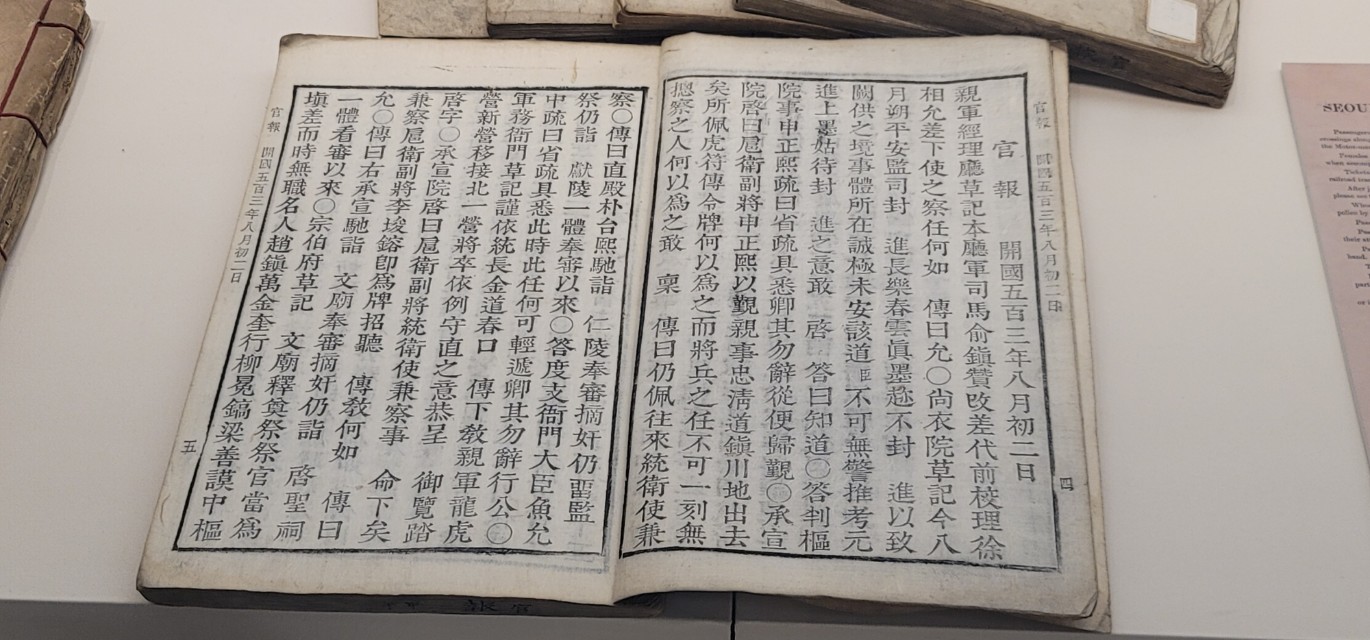 官報 開國五百三年八月初二日
官報 開國五百三年八月初二日
親軍經理廳草記本廳軍司馬俞鎭贊改差代前校理徐
相允差下使之察任何如 傳曰允○尙衣院草記今八
月朔平安監司封 進長樂春雲眞墨趂不封 進以致
闕供之境事體所在誠極未安該道臣不可無警推考元
進上墨姑待封 進之意敢 啓 答曰知道○答判樞
院事申正熙疏曰省疏具悉卿其勿辭從便歸覲○承宣
院啓曰扈衛副將申正熙以覲親事忠淸道鎭川地出去
矣所佩虎符傳令牌何以爲之而將兵之任不可一刻無
摠察之人何以爲之敢 稟 傳曰仍佩往來統衛使兼
四
察○傳曰直殿朴台熙馳詣 仁陵奉審摘奸仍詣監
祭仍詣 獻陵一體奉審以來○答度支衙門大臣魚允
中疏曰省疏具悉此時此任何可輕遞卿其勿辭行公○
軍務衙門草記謹依統長金道春口 傳下敎親軍龍虎
營新營移接北一營將卒依例守直之意恭呈 御覽踏
啓字○承宣院啓曰扈衛副將統衛使兼察事 命下矣
兼察扈衛副將李埈鎔卽爲牌招聽 傳敎何如 傳曰
允○傳曰右承宣馳詣 文廟奉審摘奸仍詣 啓聖祠
一體看審以來○宗伯府草記 文廟釋奠祭祭官當爲
塡差而時無職名人趙鎭萬金奎行柳冕鎬梁善謨中樞
官報 開國五百三年八月初二日
五
SEOU
官報